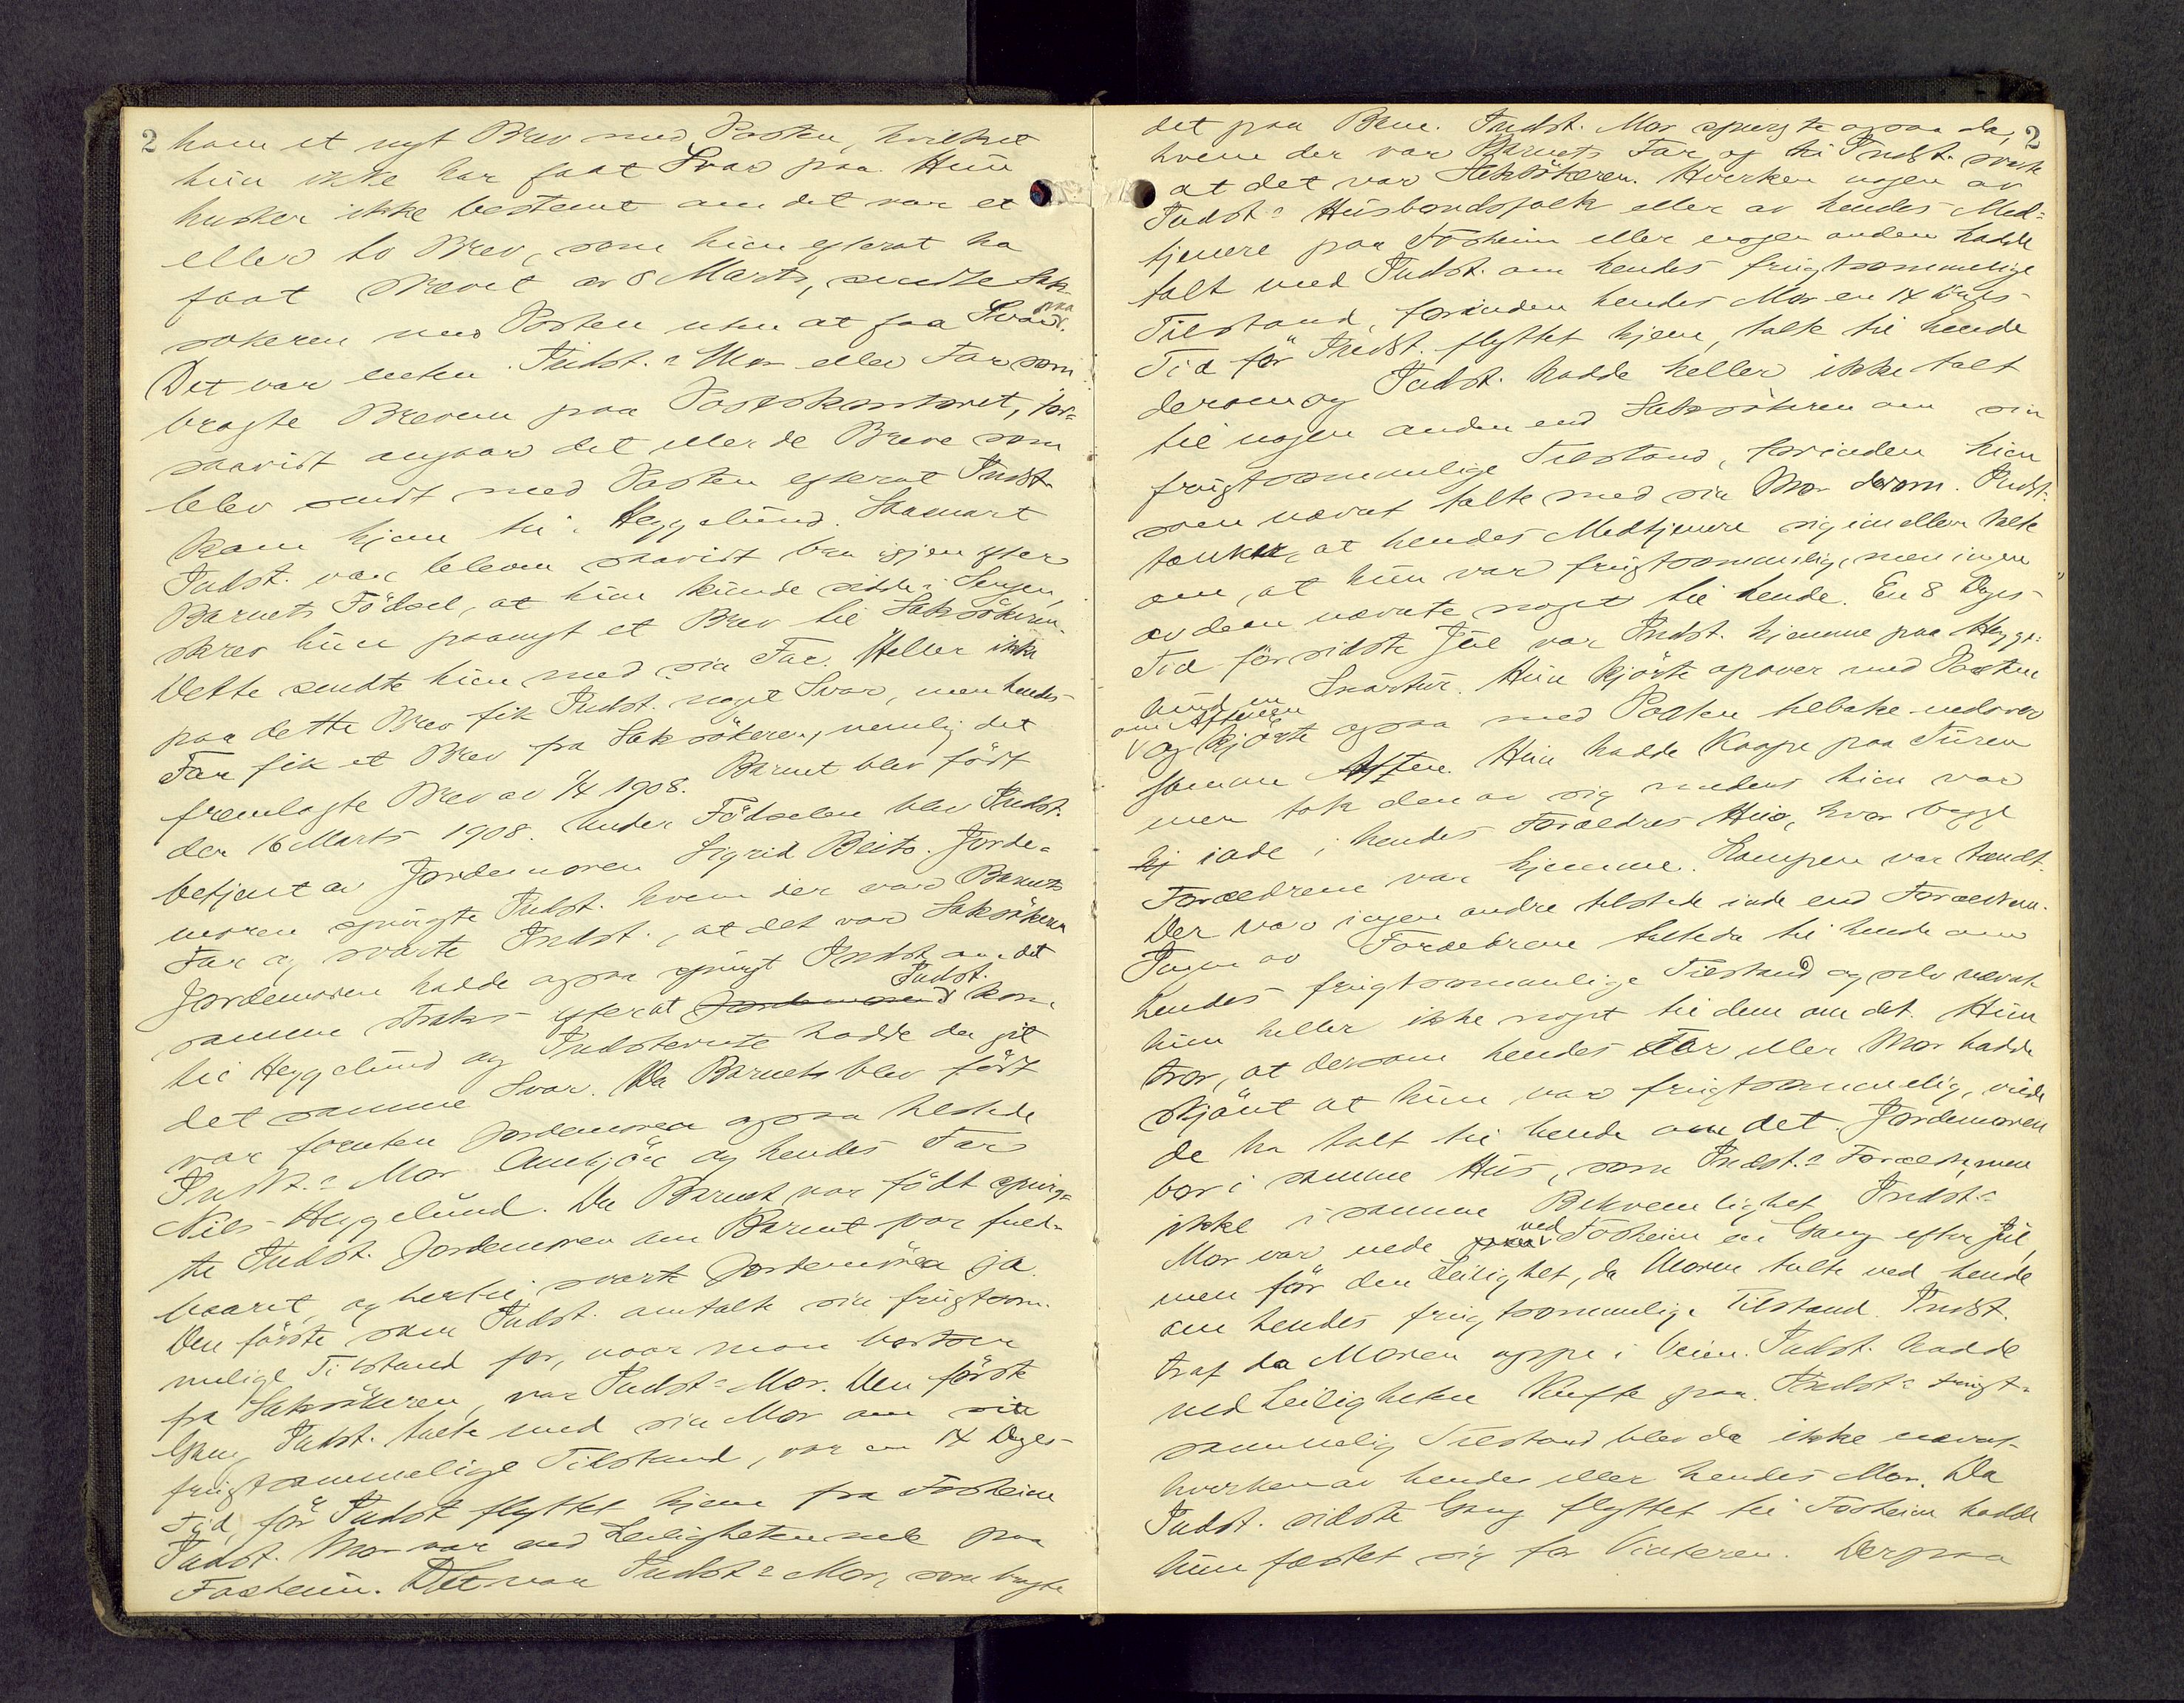 2
ham et nyt Brev med Posten, hvilket
hun ikke har faat Svar paa. Hun
husker ikke bestemt om det var et
eller to Brev, som hun efterat ha
faat Brevet av 8 Marts, sendte Sak-
søkeren med Posten uten at faa Svar paa.
Det var enten Indst.s Mor eller Far som
bragte Brevene paa Postkontoret, for-
saavidt angaar det eller de Breve som
blev sendt med Posten efterat Indst.
kom hjem til Heggelund. Saasnart
Indst. var bleven saavidt bra igjen efter
Barnets Födsel, at hun kunde sidde i Sengen,
skrev hun paanyt et Brev til Saksökeren.
Dette sendte hun med sin Far. Heller ikke
paa dette Brev fik Indst. noget Svar, men hendes
Far fik et Brev fra Saksökeren, nemlig det
fremlagte Brev av 1/4 1908. Barnet blev födt
den 16 Marts 1908. Under Födselen blev Indst.
betjent av Jordemoren Sigrid Beito. Jorde-
moren spurgte Indst. hvem der var Barnets
Far og svarte Indst., at det var Saksökeren
Jordemoren hadde ogsaa spurgt Indst. om det
samme straks efterat Jordemoren Indst. kom
til Heggelund og Indstevnte hadde da git
det samme Svar. Da Barnet blev födt
var foruten Jordemoren ogsaa tilstede
Indst.s Mor Ambjör og hendes Far
Nils Heggelund. Da Barnet var födt spurg-
te Indst. Jordemoren om Barnet var fuld-
baaret, og hertil svarte Jordemoren ja.
Den förste som Indst. omtalte sin frugtsom-
melige Tilstand for, naar man bortser
fra Saksökeren, var Indst.s Mor. Den förste
Gang Indst. talte med sin Mor om sin
frugtsommelige Tilstand, var en 14 Dages
Tid, för Indst. flyttet hjem fra Fosheim
Indst. Mor var ved Leiligheten nede paa
Fosheim. Det var Indst.s Mor, som bragte
2
det paa Bane. Indst. Mor spurgte ogsaa da,
hvem der var Barnets Far og til Indst. svarte
at det var Saksökeren. Hverken nogen av
Indst.s Husbondsfolk eller av hendes Med-
tjenere paa Fosheim eller nogen anden hadde
talt med Indst. om hendes frugtsommelige
Tilstand, forinden hendes Mor en 14 Dages
Tid för Indst. flyttet hjem, talte til hende
derom og Indst. hadde heller ikke talt
til nogen anden end Saksökeren om sin
frugtsommelige Tilstand, forinden hun
som nævnt talte med sin Mor derom. Indst.
tænkte, at hendes Medtjenere sig imellem talte
om, at hun var frugtsommelig, men ingen
av dem nævnte noget til hende. En 8 Dages
Tid för sidste Jul var Indst. hjemme paa Hegge-
lund en Snartur. Hun kjörte opover med Posten
om Aftenen
og kjörte ogsaa med Posten tilbake nedover
samme Aften. Hun hadde Kaape paa Turen
men tok den av sig medens hun var
hj inde i hendes Forældres Hus, hvor begge
Forældrene var hjemme. Lampen var tændt.
Der var ingen andre tilstede inde end Forældrene.
Ingen av Forældrene talte da til hende om
hendes frugtsommelige Tilstand og selv nævnte
hun heller ikke noget til dem om det. Hun
tror, at dersom hendes Far eller Mor hadde
skjönt at hun var frugtsommelig, vilde
de ha talt til hende om det. Jordemoren
bor i samme Hus, som Indst.s Forældre, men
ikke i samme Bekvemlighet. Indst.s
Mor var nede ved Fosheim en Gang efter Jul,
men för den Leilighet, da Moren talte ved hende
om hendes frugtsommelige Tilstand. Indst.
traf da Moren oppe i Veien. Indst. hadde
ved Leiligheten Kufte paa. Indst.s frugt-
sommelig Tilstand blev da ikke nævnt
hverken av hende eller hendes Mor. Da
Indst. sidste Gang flyttet til Fosheim hadde
hun fæstet sig for Vinteren. Derpaa